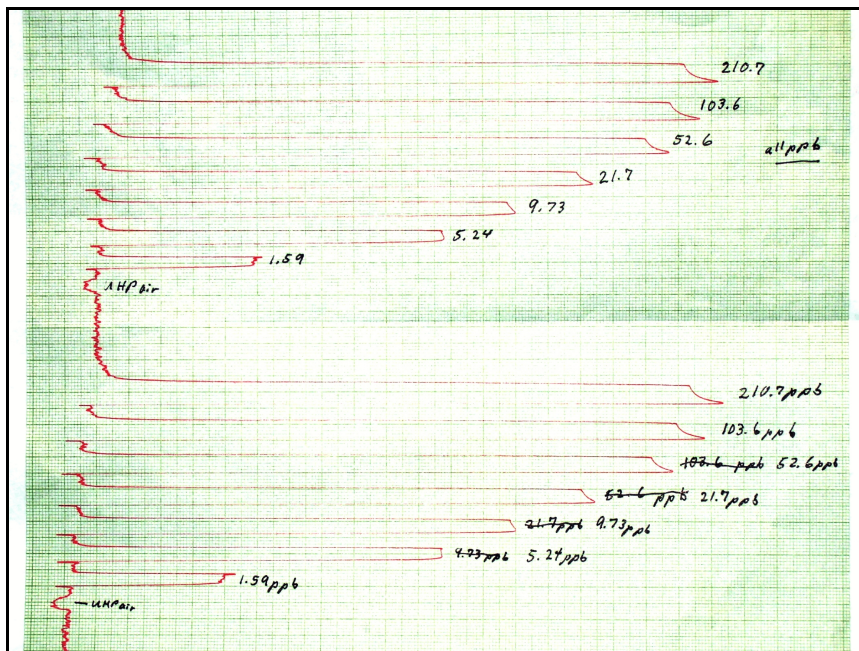 210.7
103.6
52.6
all ppb
21.7
9.73
5.24
1.59
UHP air
210.7ppb
103.6ppb
103.6 ppb 52.6ppb
52.6 ppb 21.7ppb
21.7ppb 9.73ppb
9.73ppb 5.24ppb
1.59ppb
UHP air